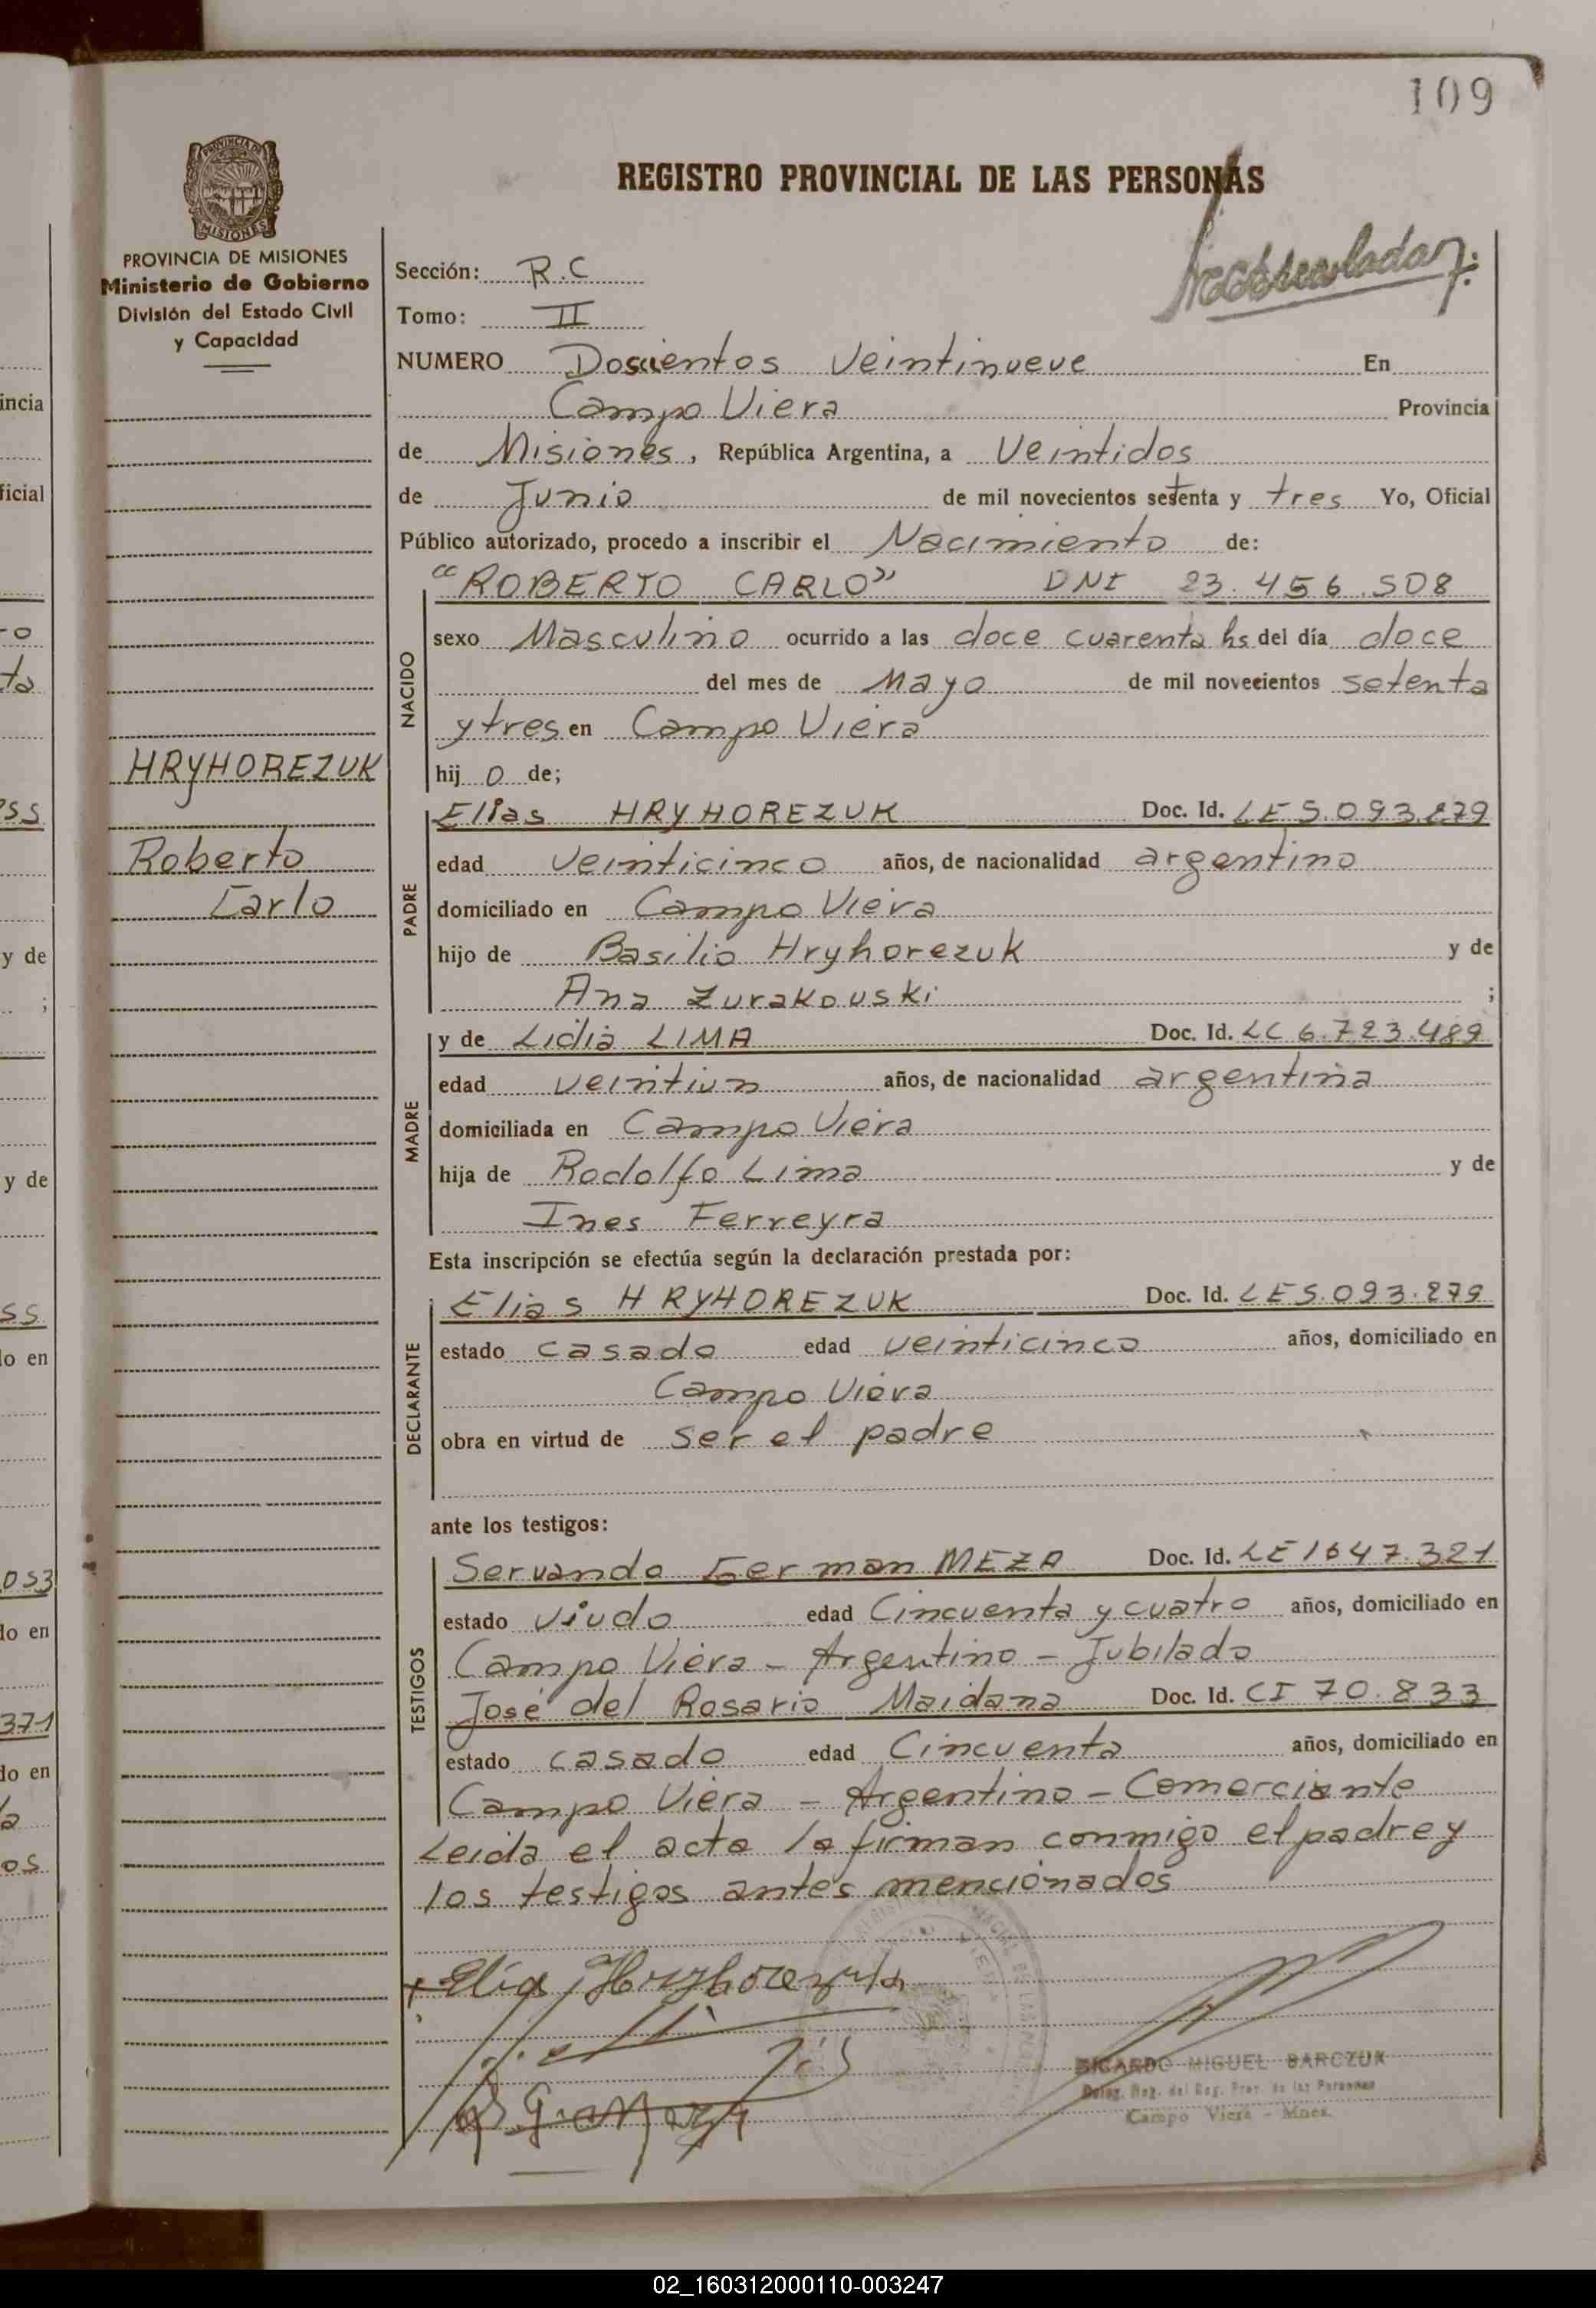 109
REGISTRO PROVINCIAL DE LAS PERSONAS
PROVINCIA DE MISIONES
Ministerio de Gobierno
División del Estado Civil
y Capacidad
Sección: R.C
Tomo: II
NUMERO Doscientos Veintinueve En
Campo Viera Provincia
de Misiones, República Argentina, a Veintidos
de Junio de mil novecientos setenta y tres Yo, Oficial
Público autorizado, procedo a inscribir el Nacimiento de:
"ROBERTO CARLO" DNI 23.456.508
NACIDO
sexo Masculino ocurrido a las doce cuarenta hs del día doce
del mes de Mayo de mil novecientos setenta
y tres en Campo Viera
hij o de;
HRYHOREZUK
Roberto
Carlo
PADRE
Elias HRYHOREZUK Doc. Id. LE 5.093.879
edad veinticinco años, de nacionalidad argentino
domiciliado en Campo Viera
hijo de Basilio Hryhorezuk y de
Ana Zurakouski ;
MADRE
y de Lidia LIMA Doc. Id. LC 6.723.489
edad veintiun años, de nacionalidad argentina
domiciliada en Campo Viera
hija de Rodolfo Lima y de
Ines Ferreyra
Esta inscripción se efectúa según la declaración prestada por:
DECLARANTE
Elias HRYHOREZUK Doc. Id. LE 5.093.879
estado casado edad veinticinco años, domiciliado en
Campo Viera
obra en virtud de ser el padre
ante los testigos:
TESTIGOS
Servando German MEZA Doc. Id. LE 1647.321
estado viudo edad Cincuenta y cuatro años, domiciliado en
Campo Viera - Argentino - Jubilado
José del Rosario Maidana Doc. Id. CI 70.833
estado casado edad Cincuenta años, domiciliado en
Campo Viera - Argentino - Comerciante
Leida el acta la firman conmigo el padre y
los testigos antes mencionados
Elias Hryhorezuk
RICARDO MIGUEL BARCZUK
Deleg. Reg. del Reg. Prov. de las Personas
Campo Viera - Mnes.
02_160312000110-003247